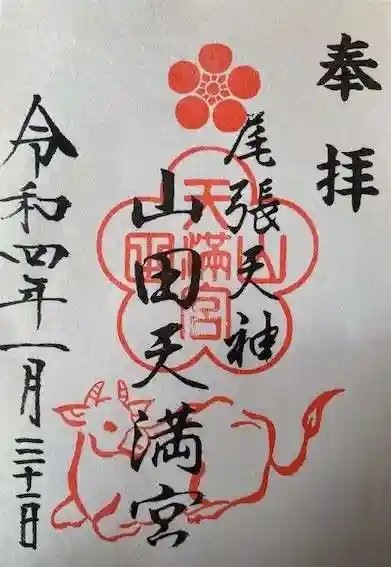 奉拝
尾張天神
山田天満宮
山田天満宮
令和四年一月三十一日